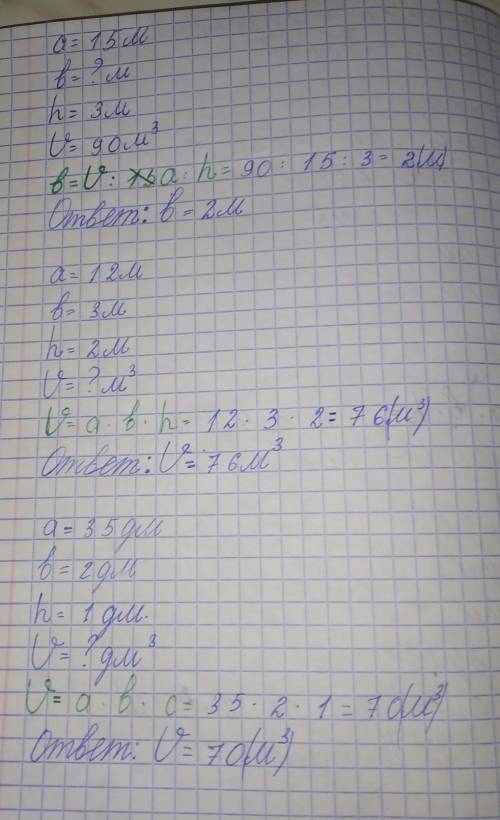 a = 15м
в = ?м
h = 3м
V = 90м³
в = V : a : h = 90 : 15 : 3 = 2(м)
Ответ: в = 2м
a = 12м
в = 3м
h = 2м
V = ?м³
V = a · в · h = 12 · 3 · 2 = 76(м³)
Ответ: V = 76м³
a = 35дм
в = 2дм
h = 1дм.
V = ?дм³
V = a · в · c = 35 · 2 · 1 = 70(м³)
Ответ: V = 70(м³)